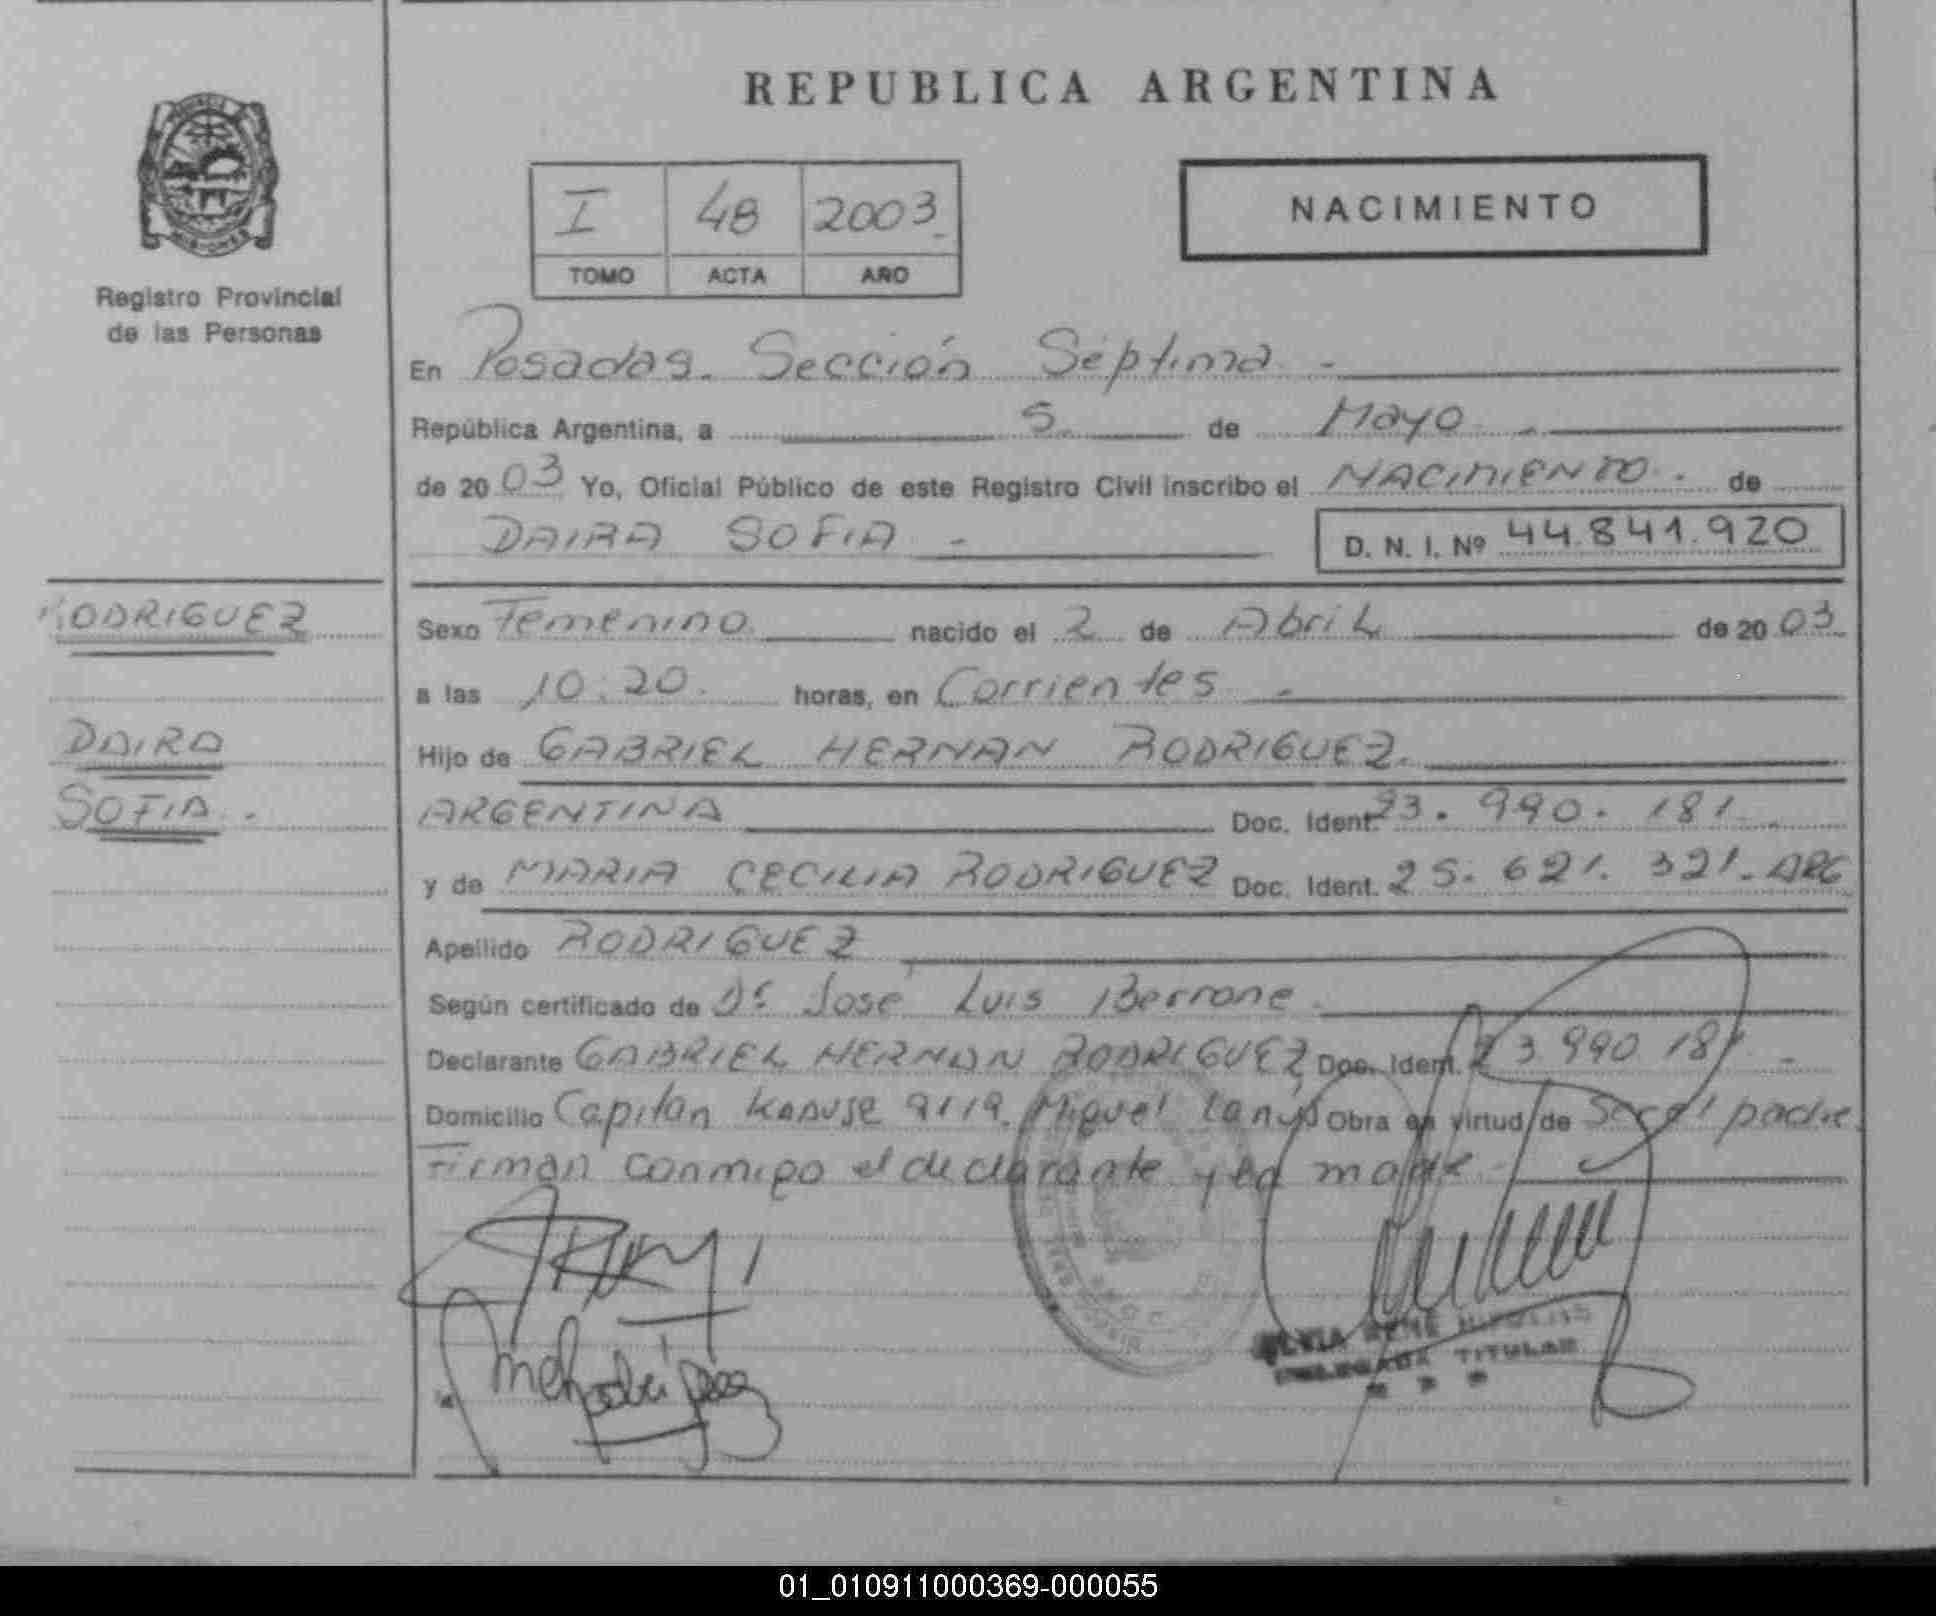 REPUBLICA ARGENTINA
MISIONES
Registro Provincial
de las Personas
I 48 2003
TOMO ACTA AÑO
NACIMIENTO
En Posadas. Sección Séptima. -
República Argentina, a 5 de Mayo. -
de 2003 Yo, Oficial Público de este Registro Civil inscribo el NACIMIENTO. de
DAIRA SOFIA - D. N. I. Nº 44.841.920
RODRIGUEZ
DAIRA
SOFIA. -
Sexo Femenino nacido el 2 de Abril de 2003
a las 10:20. horas, en Corrientes -
Hijo de GABRIEL HERNAN RODRIGUEZ.
ARGENTINA Doc. Ident. 23. 990. 181.
y de MARIA CECILIA RODRIGUEZ Doc. Ident. 25. 621. 321. ARG
Apellido RODRIGUEZ
Según certificado de Dr. José Luis Berrone.
Declarante GABRIEL HERNAN RODRIGUEZ Doc. Ident. 23.990.181 -
Domicilio Capitan 9119. Miguel Lanús Obra en virtud de Ser el padre.
Firman conmigo el declarante y la madre -
TITULAR
01_010911000369-000055